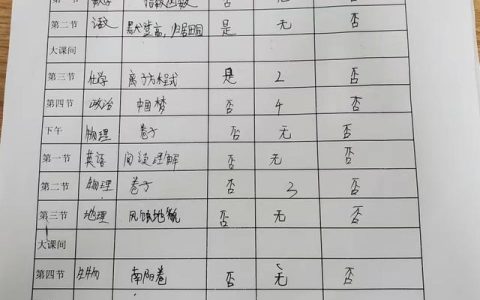 数学 指数函数 是 无 否
第二节 语文 归园田居 是 无 否
大课间
第三节 化学 离子方程式 是 2 否
第四节 政治 中国梦 否 4 否
下午 物理 卷子 否 无 否
第一节 英语 阅读理解 否 无 否
第二节 物理 卷子 否 3 否
第三节 地理 风蚀地貌 否 无 否
大课间
第四节 生物 南阳卷 否 无 否